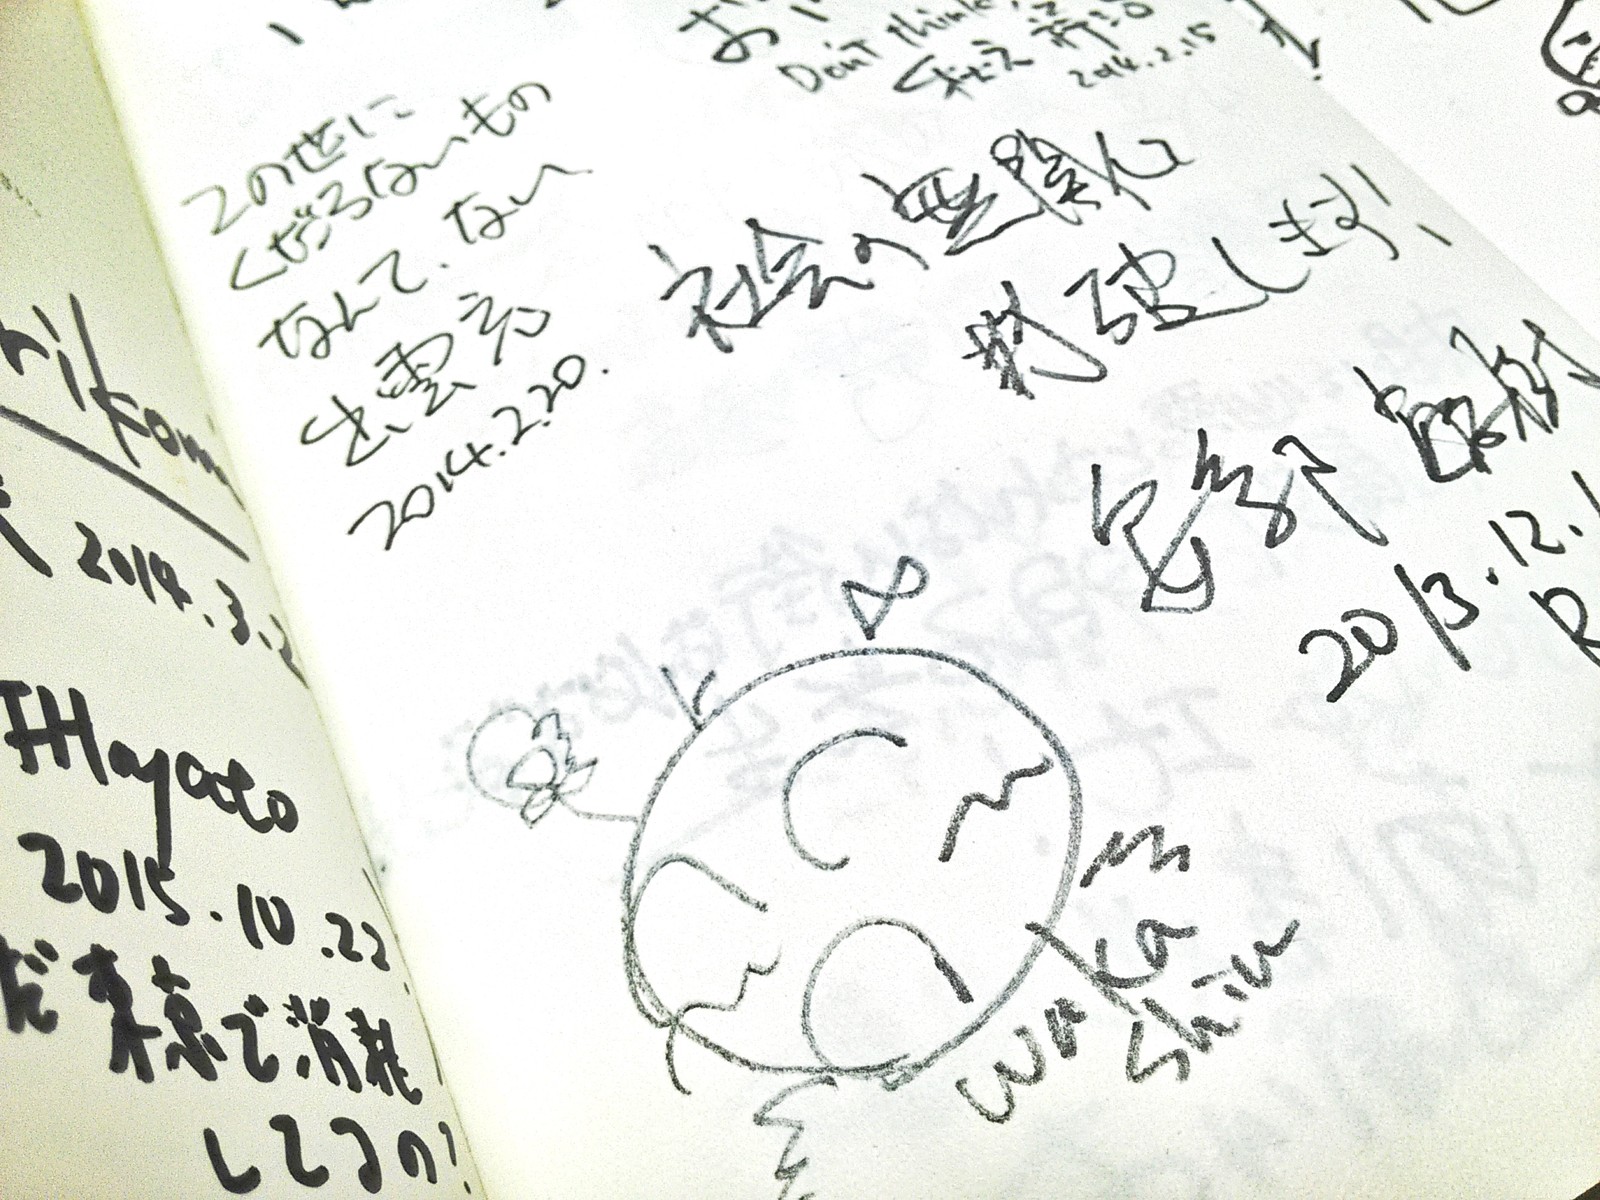 rikom
2014.3.2
IHHayato
2015.10.22
だ東京で消耗
してるの?
Don't think,
2014.2.15
この世に
くだらないもの
なんて、ない
出雲充
2014.2.20.
社会の無関心
打破します!
安部 敏樹
2013.12.1
R
Waka
Shin